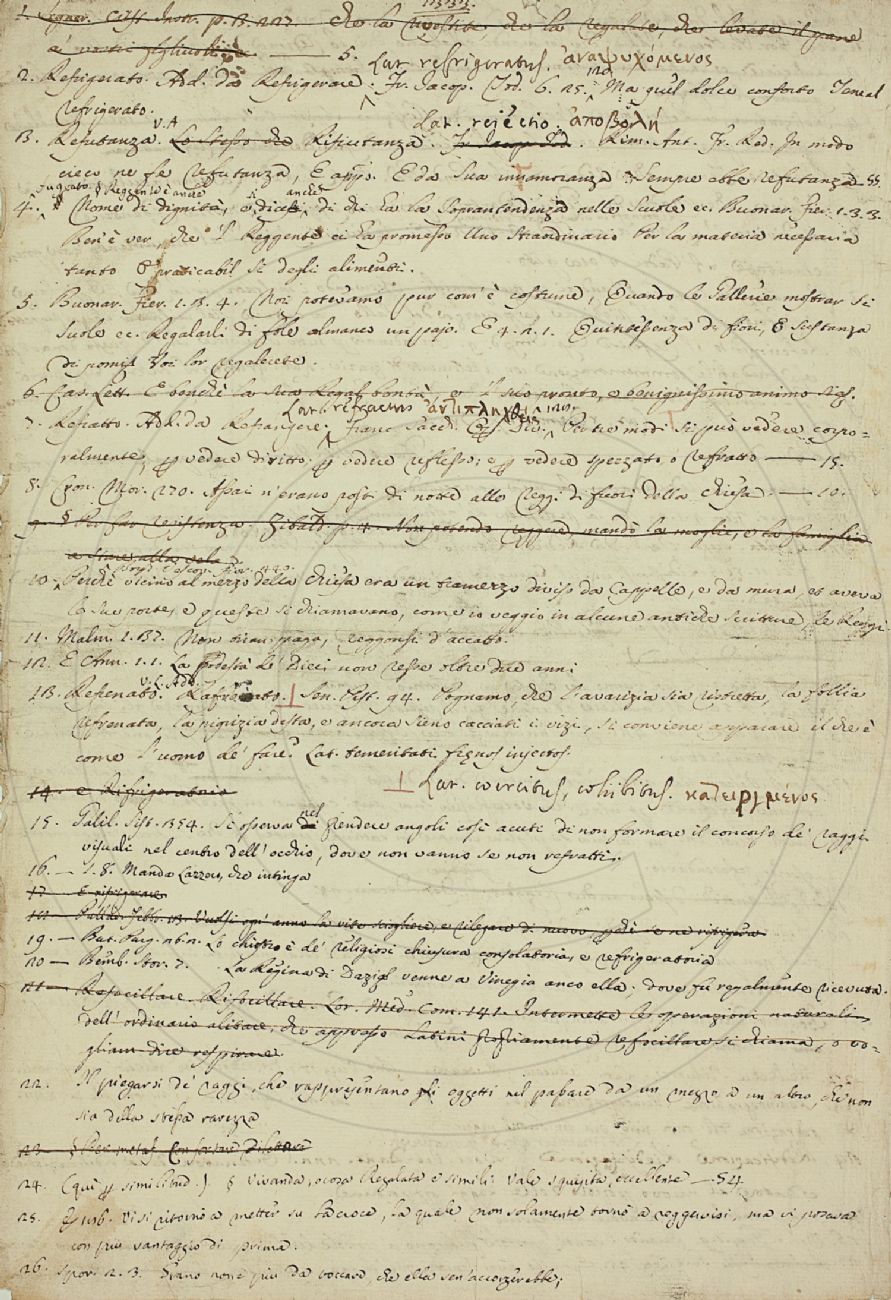 1. Segner. Crist. Instr. p. 3. 227. che la che la regalate, che levate il pane
a' vostri figliuoli ——— 5.
Lat. refrigeratus. ἀναψυχόμενος
2. Refrigerato. Add. da Refrigerare. Fr. Jacop. Tod. 6. 25. Ma quel dolce conforto Teneal
refrigerato.
Lat. rejectio. ἀποβολή
3. Refutanza. V.A Lo stesso che Rifiutanza. Fr. Jacop. Tod. Rim. Ant. Fr. Red. In modo
cieco ne fe refutanza, E appo. E da sua innamoranza Sempre ebbe refutanza — 55.
4. § Reggente è anche Nome di dignità, e dicesi anche di chi ha la soprantendenza nelle Scuole ec. Buonar. Fier. 1. 3. 3.
Ben'è ver, che 'l Reggente ci ha promesso Uno straordinario Per la materia necessaria
tanto E praticabil sì degli alimenti.
5. Buonar. Fier. 1. 3. 4. Noi potevamo pur com'è costume, Quando le Gallerie mostrar si
suole ec. Regalarli di fole almanco un pajo. E 4. 2. 1. Quintessenza di fiori, E sustanza
di pomi Voi lor regalerete.
6. Cas. Lett. E benchè la sua Regal bontà, e 'l suo pronto, e benignissimo animo sig.
Lat. refractus
7. Refratto. Add. da Refrangere. Franc. Sacch. Op. Div. Per tre modi si può vedere corpo=
ralmente, per vedere diritto; per vedere reflesso; e per vedere spezzato, o refratto —— 15.
8. Cron. Mor. 270. Assai n'erano posti di notte alle regg. di fuori della chiesa. —— 10.
9. § Per far resistenza. Zibald. p. 4. Non potendo reggere, mandò la moglie, e la famiglia
a stare alla vela.
10. Perchè vicino al mezzo della chiesa era un tramezzo diviso da Cappelle, e da mura, et aveva
le sue porte, e queste si chiamavano, come io veggio in alcune antiche scritture, le Reggi.
11. Malm. 1. 37. Non han paga, reggonsi d'accatto.
12. E Ann. 1. 1. La podestà de' Dieci non resse oltre due anni
13. Refrenato. V. L. Add. Raffrenato. Sen. Pist. 94. Pognamo, che l'avarizia sia ristretta, la follia
refrenata, la pigrizia desta, e ancora sieno cacciati i vizj, si conviene apparare il che, e
come l'uomo de' fare. Lat. temeritati frenos injectos.
⊥ Lat. coercitus, cohibitus. κατειργμένος
14. e Rifrigeratorio
15. Galil. Sist. 354. Si osserva nel prendere angoli così acuti di non formare il concorso de' raggi
visuali nel centro dell'occhio, dove non vanno se non refratti.
16. — 1. 8. Manda Lazzero, che intinga
17 — E rifrigerare
18 — Pallad. Febbr. 13. Vuolsi ogni anno la vite sciogliere, e rilegare di nuovo, perchè se ne rifrigera
19. — But. Purg. 26. 2. Lo chiostro è de' religiosi chiusura consolatoria, e refrigeratoria
20 — Bemb. Stor. 7. La Regina di Dazigl venne a Vinegia anco ella; dove fu regalmente ricevuta.
21 — Refocillare. Rifocillare. Lor. Med. Com. 141. Intermette le operazioni naturali,
dell'ordinario alitare, che appresso Latini propriamente refocillare si chiama, o vo=
gliam dire respirare
22. Il piegarsi de' raggi, che rappresentano gli oggetti nel passare da un mezzo a un altro, che non
sia della stessa rarezza
23. § Per metaf. Confortare Dilettare
24. (qui per similitud.) § Vivanda, o cosa Regalata e simili vale squisita, eccellente — 54
25. Vi si ritornò a metter su la croce, la quale non solamente tornò a reggervisi, ma vi posava
con più vantaggio di prima.
26. Spor. 2. 3.